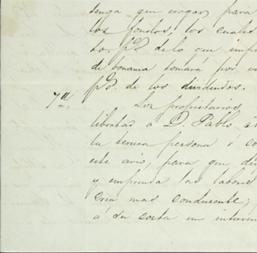 tenga que erogar para
los fondos, los cuales
por p.º de lo que
de bonanza tomará por
p.º de los dividendos.
7.ª Los propietarios,
libertad a D. Pablo,
la tercera persona
este avio, para que
y emprenda las labores
crea mas conducente,
á su costa un